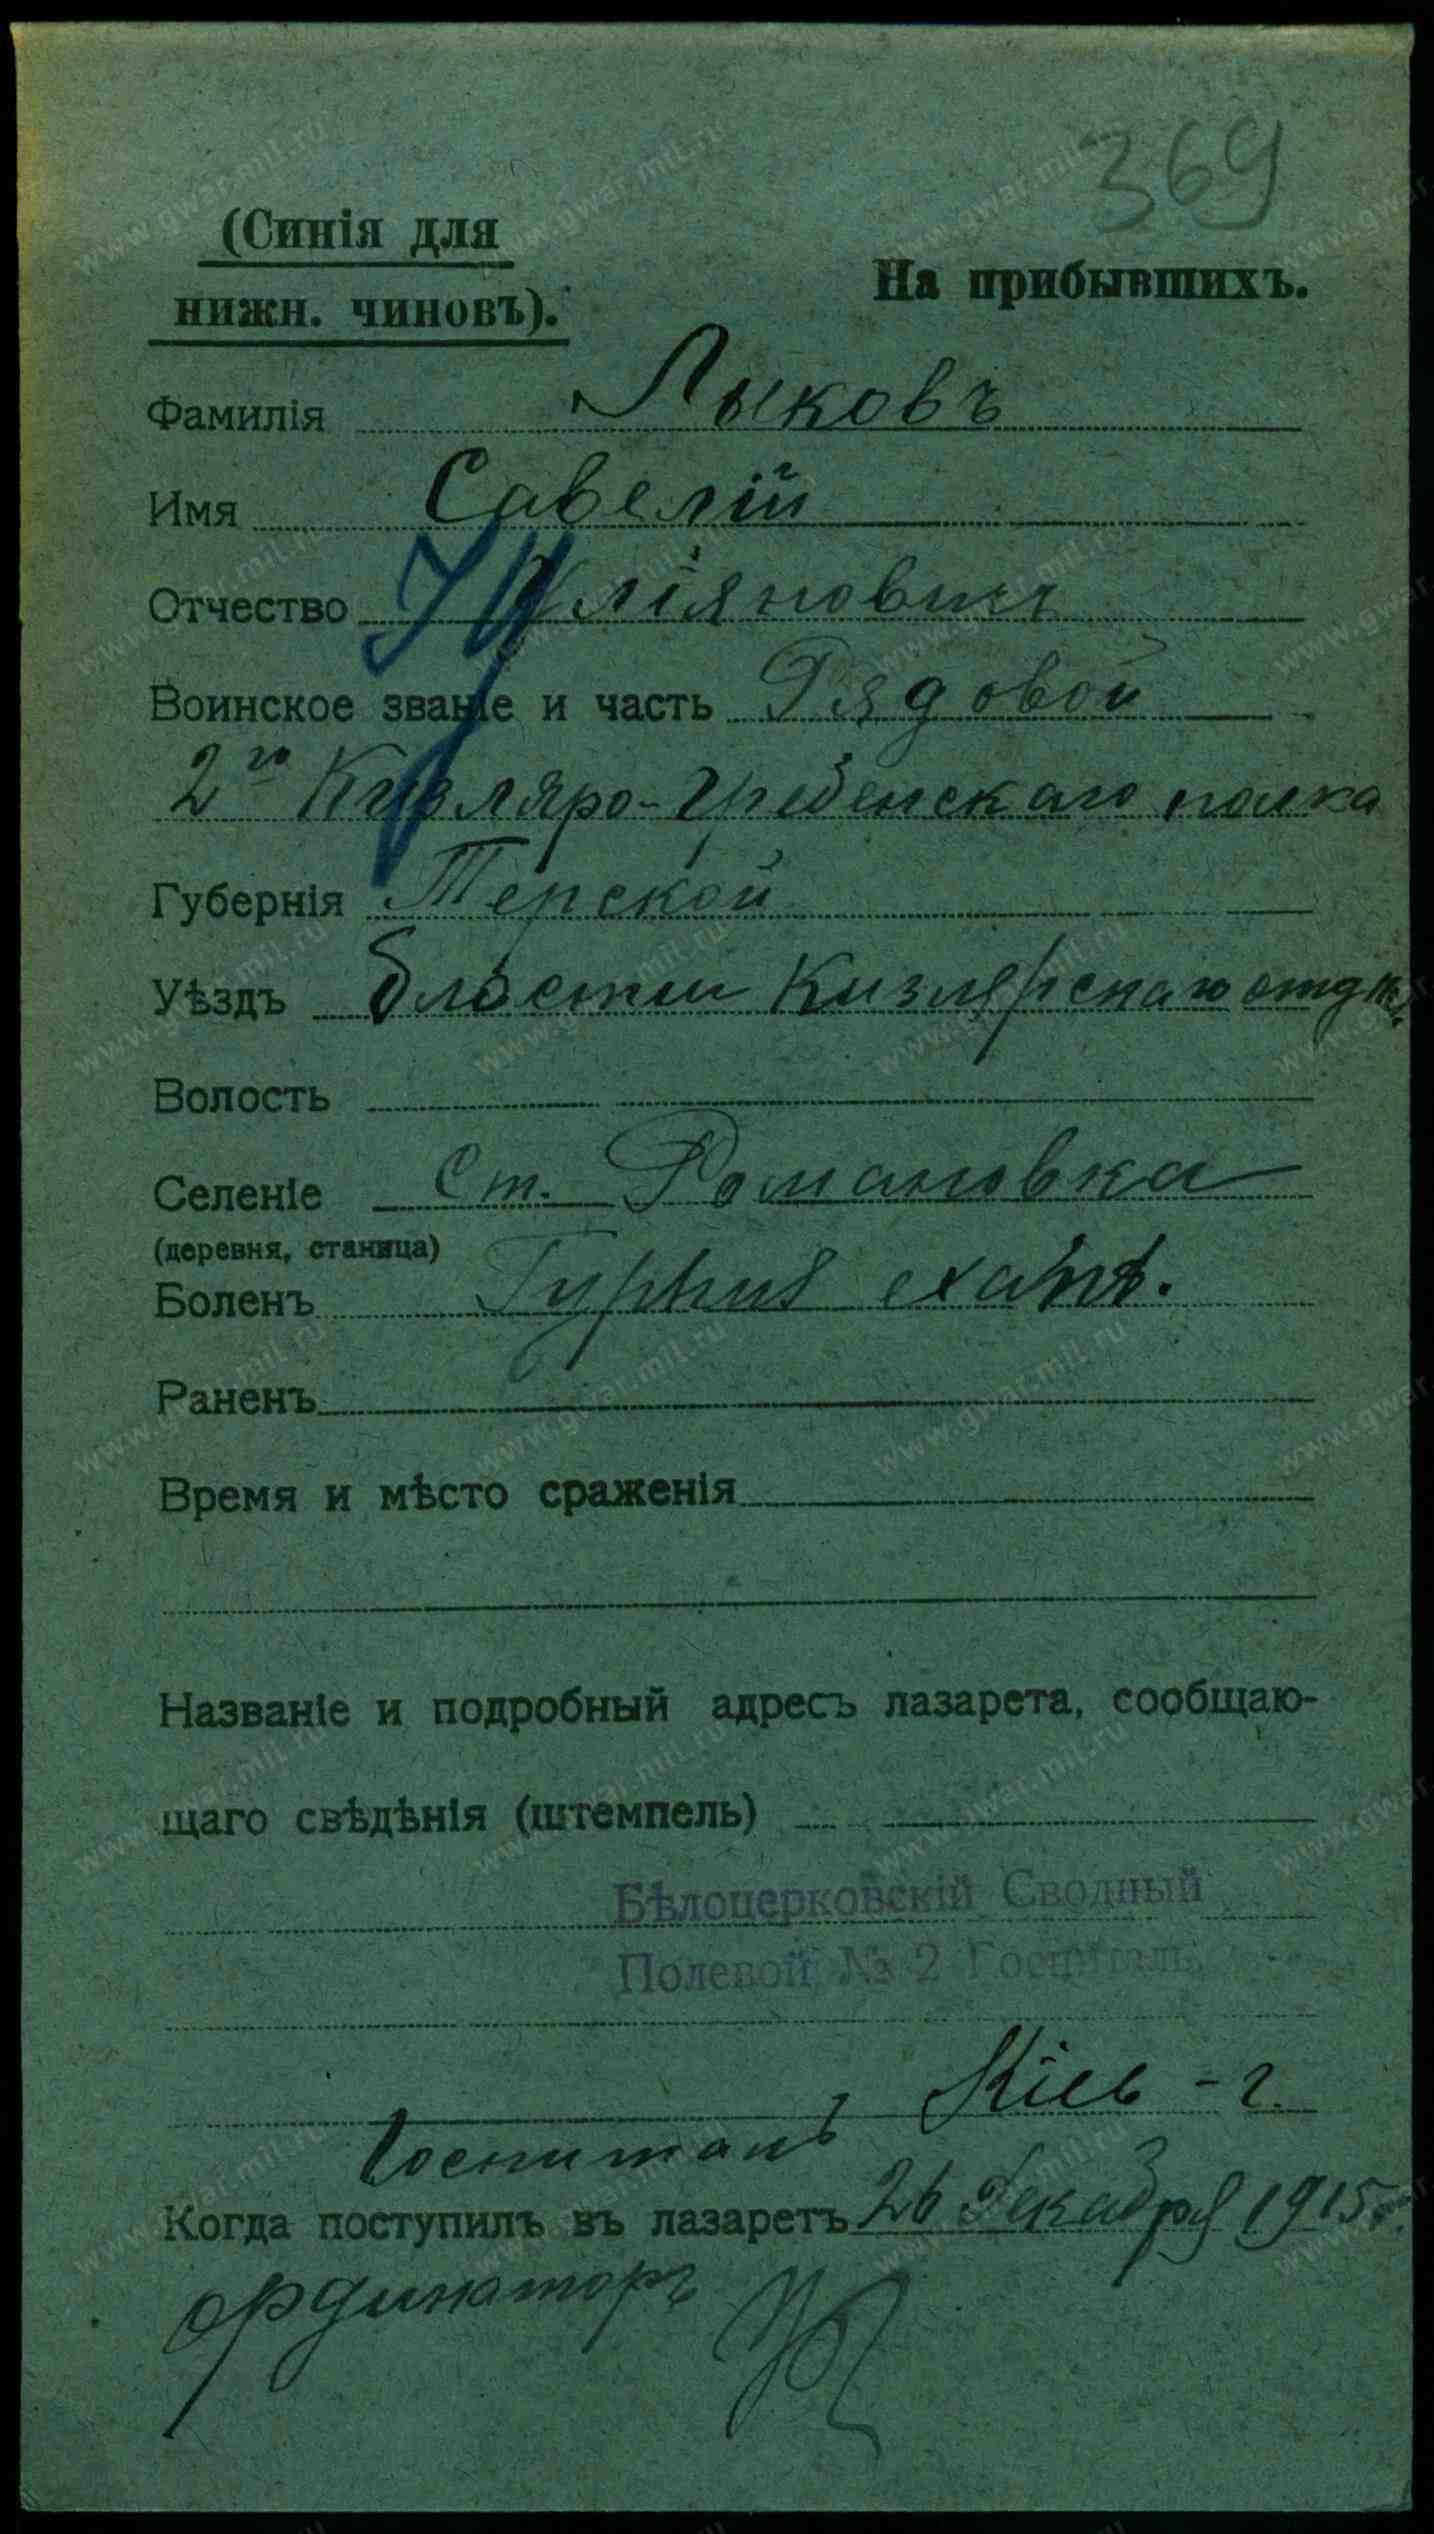 369
(Синія для
нижн. чиновъ).
На прибывшихъ.
Фамилія Лыковъ
Имя Савелій
Отчество Уліяновичъ
Воинское званіе и часть Рядовой
2го Кизляро-Гребенскаго полка
Губернія Терской
Уѣздъ области Кизлярскаго отдѣл.
Волость
Селеніе ст. Романовка
(деревня, станица)
Боленъ Typhus exant.
Раненъ
Время и мѣсто сраженія
Названіе и подробный адресъ лазарета, сообщаю-
щаго свѣдѣнія (штемпель)
Бѣлоцерковскій Сводный
Полевой № 2 Госпиталь
Кіев - г.
Госпиталь
Когда поступилъ въ лазаретъ 26 декабря 1915 г.
ординаторъ